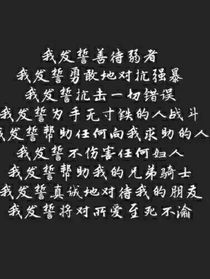 我发誓善待弱者
我发誓勇敢地对抗强暴
我发誓抗击一切错误
我发誓为手无寸铁的人战斗
我发誓帮助任何向我求助的人
我发誓不伤害任何妇人
我发誓帮助我的兄弟骑士
我发誓真诚地对待我的朋友
我发誓将对所爱至死不渝